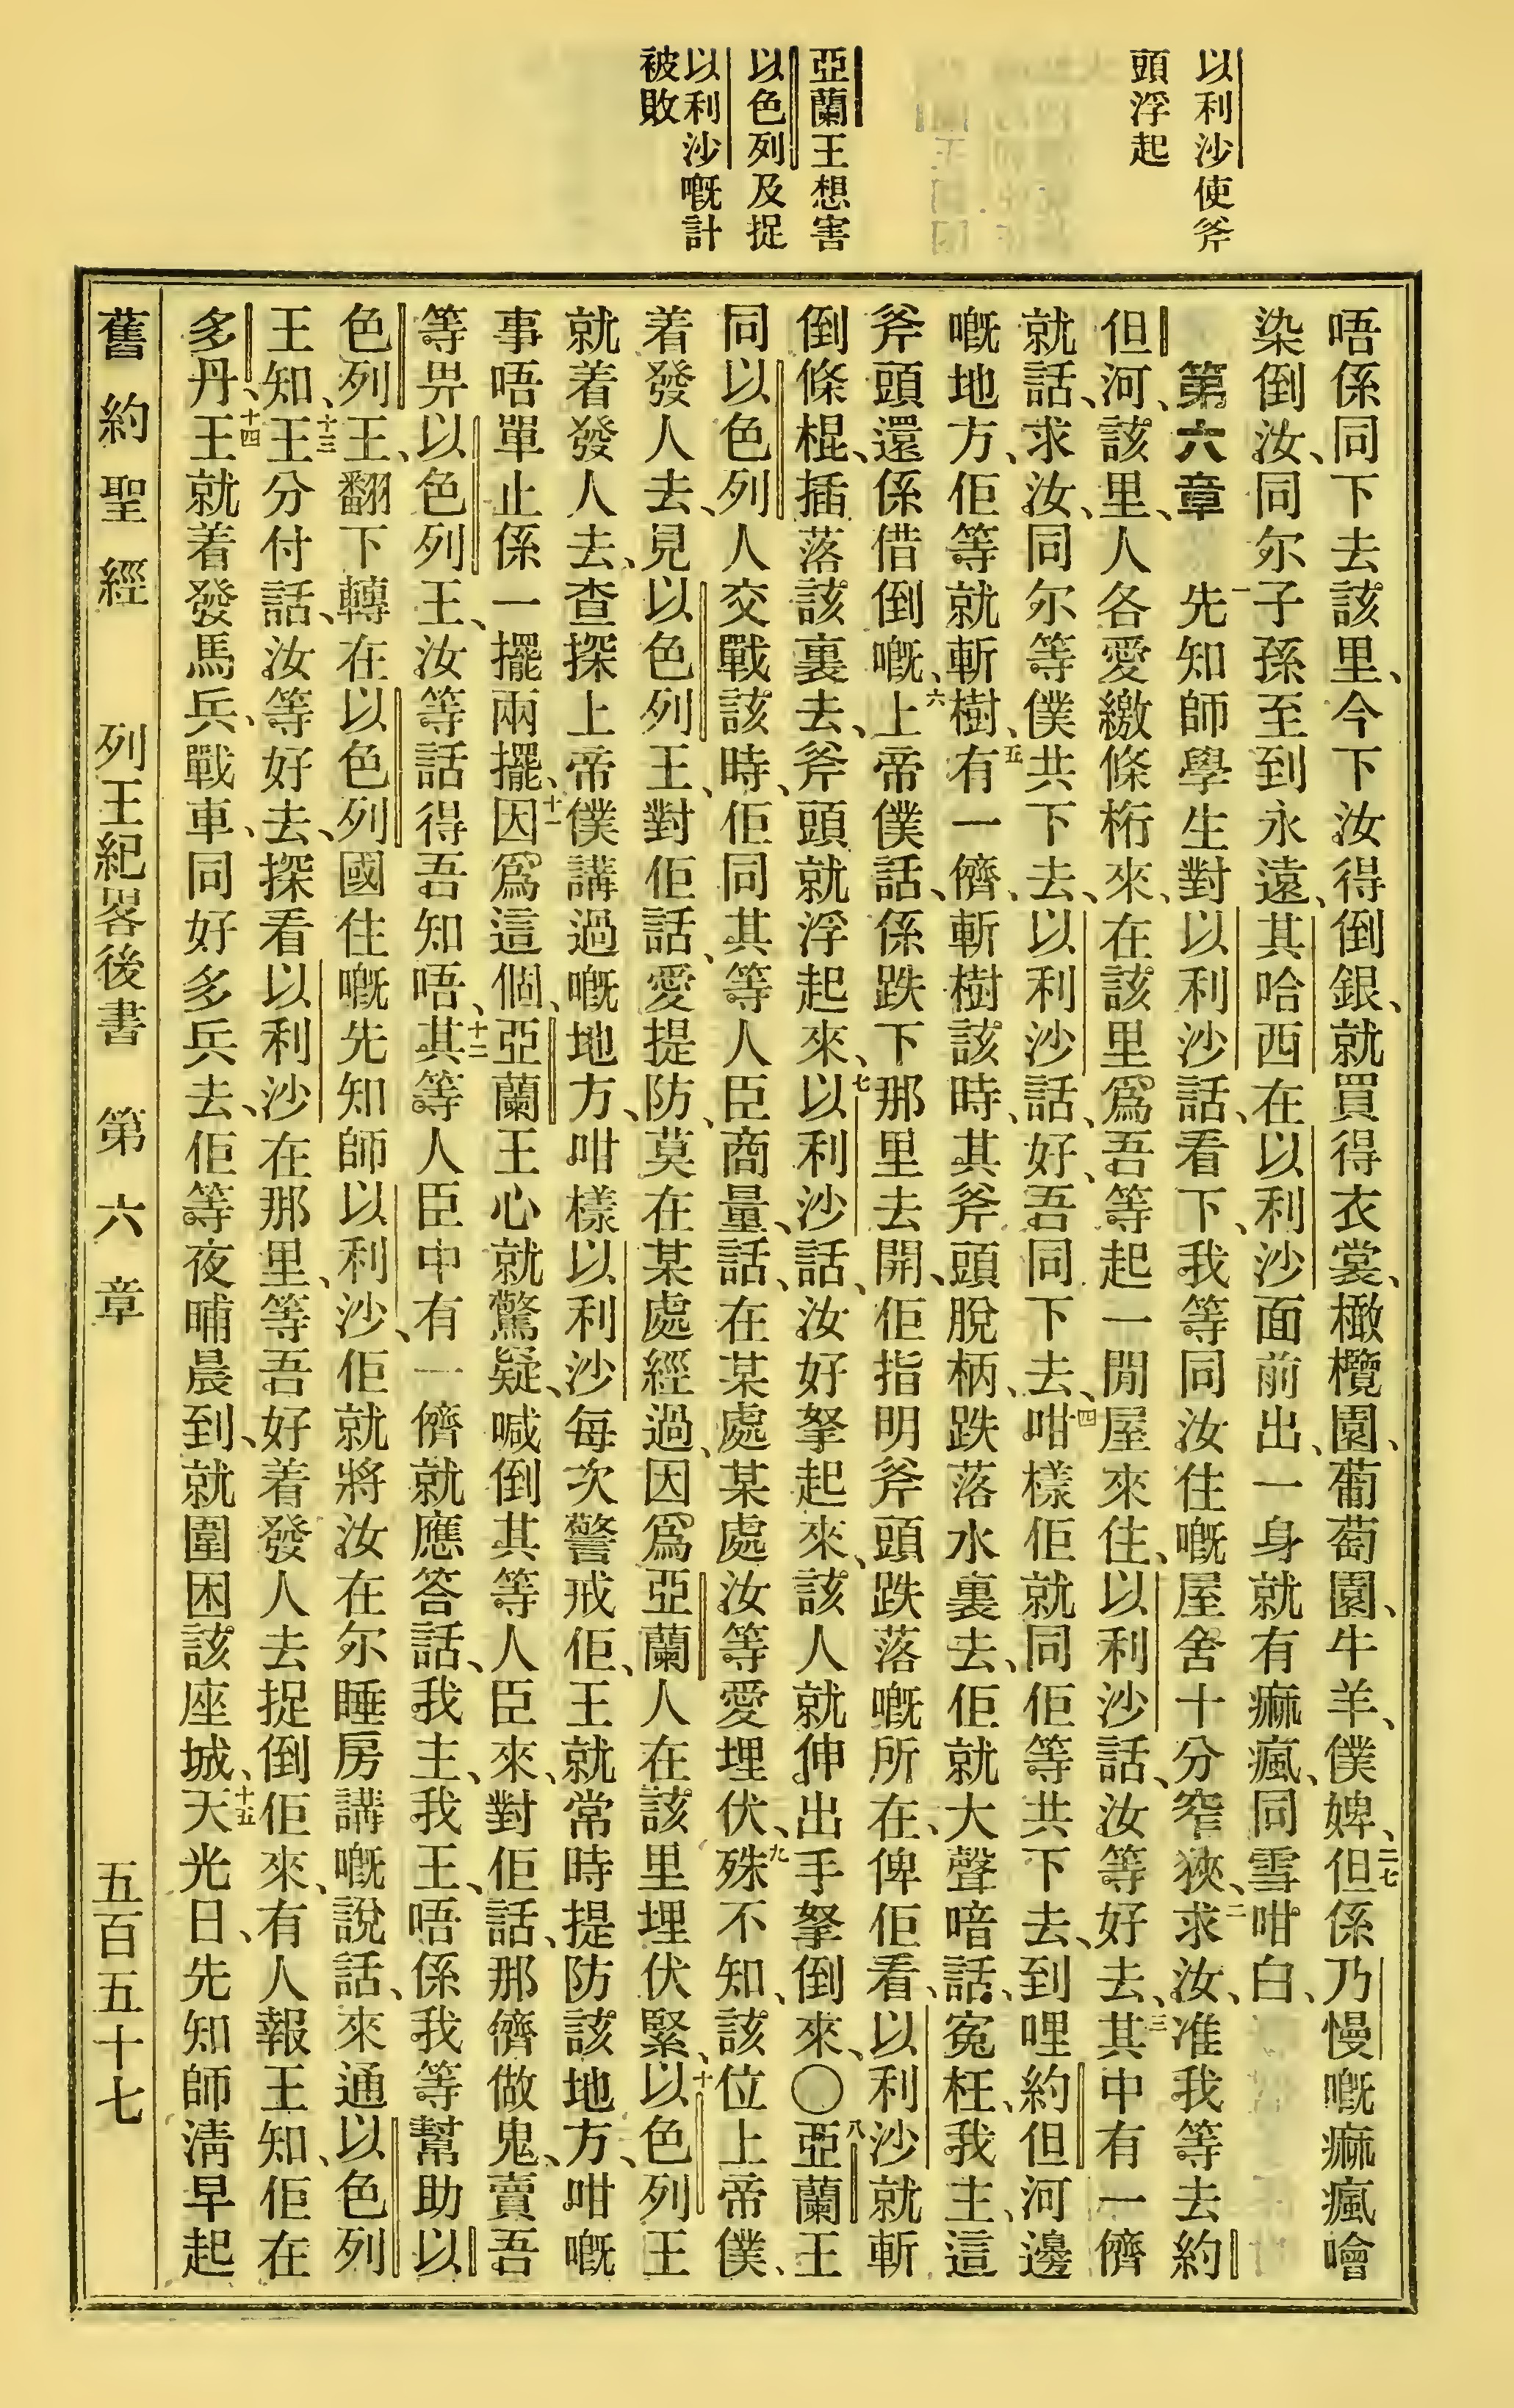 以利沙使斧
頭浮起
亞蘭王想害
以色列及捉
以利沙嘅計
被敗
唔係同下去該里、今下汝得倒銀、就買得衣裳、橄欖園、葡萄園、牛羊、僕婢、二七但係乃慢嘅痲瘋噲
染倒汝、同尔子孫至到永遠、其哈西在以利沙面前出、一身就有痲瘋、同雪咁白、
第六章 一先知師學生對以利沙話、看下、我等同汝住嘅屋舍十分窄狹、二求汝、准我等去約
但河、該里、人各愛繳條桁來、在該里爲吾等起一間屋來住、以利沙話、汝等好去、三其中有一儕
就話、求汝、同尔等僕共下去、以利沙話、好、吾同下去、四咁樣佢就同佢等共下去、到哩約但河邊
嘅地方、佢等就斬樹、五有一儕、斬樹該時、其斧頭脫柄、跌落水裏去、佢就大聲喑話、寃枉、我主、這
斧頭還係借倒嘅、六上帝僕話、係跌下那里去開、佢指明斧頭跌落嘅所在、俾佢看、以利沙就斬
倒條棍、插落該裏去、斧頭就浮起來、七以利沙話、汝好拏起來、該人就伸出手拏倒來、〇八亞蘭王
同以色列人交戰該時、佢同其等人臣商量、話、在某處某處汝等愛埋伏、九殊不知、該位上帝僕、
着發人去、見以色列王、對佢話、愛提防、莫在某處經過、因爲亞蘭人在該里埋伏緊、十以色列王
就着發人去、查探上帝僕講過嘅地方、咁樣以利沙每次警戒佢、王就常時提防該地方、咁嘅
事唔單止係一擺兩擺、十一因爲這個、亞蘭王心就驚疑、喊倒其等人臣來、對佢話、那儕做鬼、賣吾
等畀以色列王、汝等話得吾知唔、十二其等人臣中有一儕就應答話、我主、我王、唔係我等幫助以
色列王、翻下轉在以色列國住嘅先知師以利沙、佢就將汝在尔睡房講嘅說話、來通以色列
王知、十三王分付話、汝等好去、探看以利沙在那里、等吾好着發人去捉倒佢來、有人報王知、佢在
多丹、十四王就着發馬兵、戰車、同好多兵去、佢等夜晡晨到、就圍困該座城、十五天光日、先知師淸早起
舊約聖經 列王紀畧後書 第六章 五百五十七